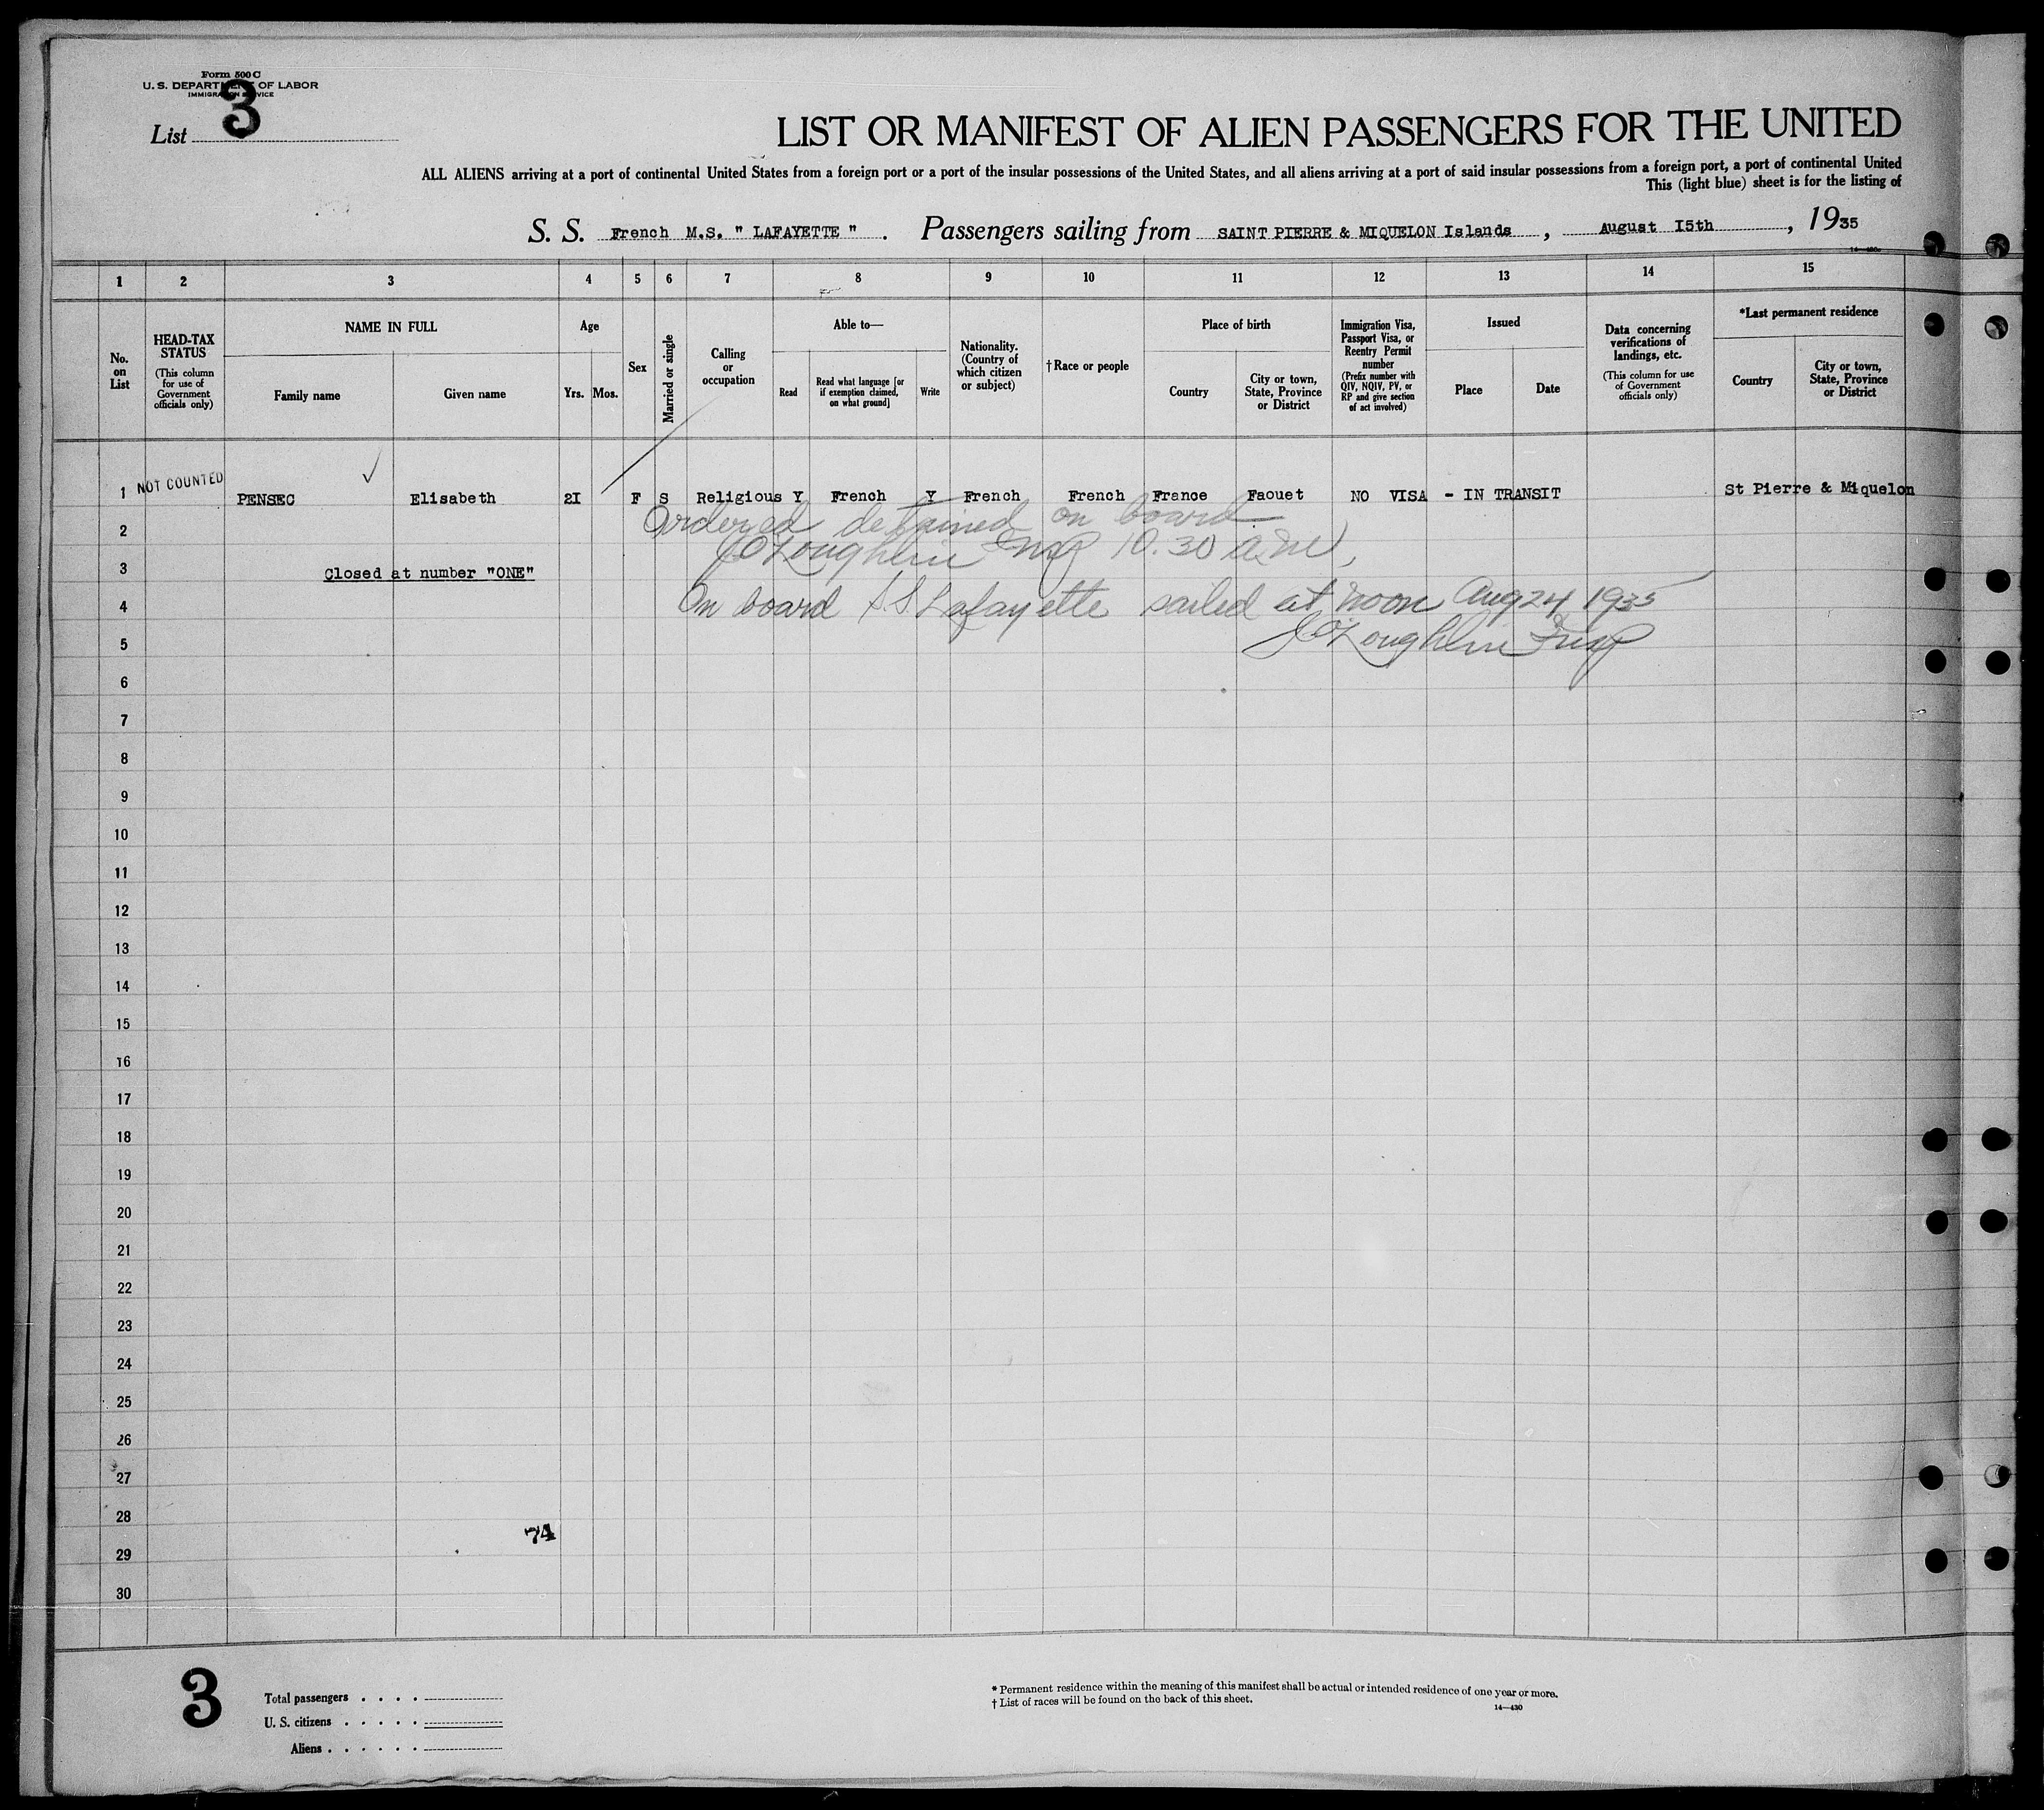 Form 500 C
U. S. DEPARTMENT OF LABOR
IMMIGRATION SERVICE
List 3
LIST OR MANIFEST OF ALIEN PASSENGERS FOR THE UNITED
ALL ALIENS arriving at a port of continental United States from a foreign port or a port of the insular possessions of the United States, and all aliens arriving at a port of said insular possessions from a foreign port, a port of continental United
This (light blue) sheet is for the listing of
S. S. French M.S. " LAFAYETTE " . Passengers sailing from SAINT PIERRE & MIQUELON Islands , August I5th , 1935
14—430
1 2 3 4 5 6 7 8 9 10 11 12 13 14 15
No. on List
HEAD-TAX STATUS
(This column for use of Government officials only)
NAME IN FULL
Family name
Given name
Age
Yrs. Mos.
Sex
Married or single
Calling or occupation
Able to—
Read
Read what language [or if exemption claimed, on what ground]
Write
Nationality. (Country of which citizen or subject)
†Race or people
Place of birth
Country
City or town, State, Province or District
Immigration Visa, Passport Visa, or Reentry Permit number
(Prefix number with QIV, NQIV, PV, or RP and give section of act involved)
Issued
Place
Date
Data concerning verifications of landings, etc.
(This column for use of Government officials only)
*Last permanent residence
Country
City or town, State, Province or District
1 NOT COUNTED PENSEC Elisabeth 2I F S Religious Y French Y French French France Faouet NO VISA - IN TRANSIT St Pierre & Miquelon
Ordered detained on board
2
J O'Loughlin Insp 10.30 a.m,
3 Closed at number "ONE"
4 On board S.S. Lafayette sailed at noon Aug 24 1935
5 J O'Loughlin Insp
6
7
8
9
10
11
12
13
14
15
16
17
18
19
20
21
22
23
24
25
26
27
28
74
29
30
3
Total passengers . . . .
U. S. citizens . . . . .
Aliens . . . . . .
* Permanent residence within the meaning of this manifest shall be actual or intended residence of one year or more.
† List of races will be found on the back of this sheet.
14—430